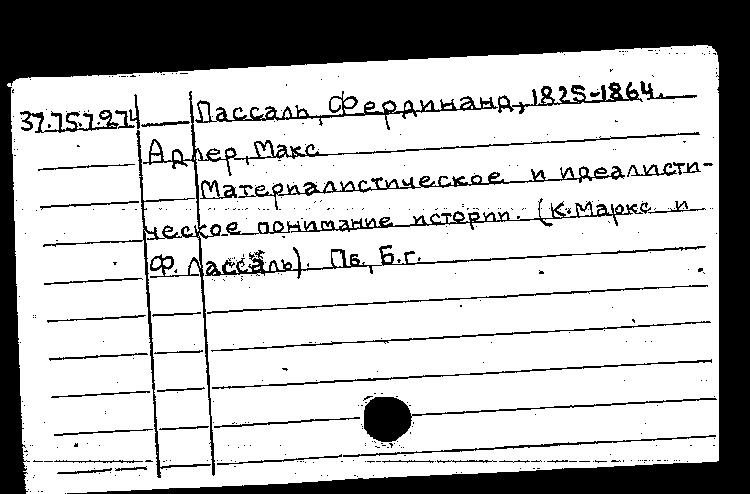 37.75.7.274 Лассаль, Фердинанд, 1825-1864.
Адлер, Макс
Материалистическое и идеалисти-
ческое понимание истории. (К.Маркс и
Ф. Лассаль). Пб., Б.г.